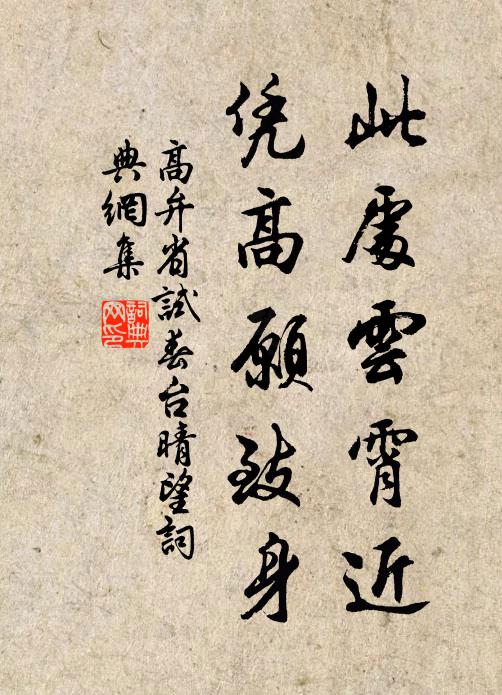 此處雲霄近
凭高願致身
高弁省試春台晴望詞
典網集
詞典網印